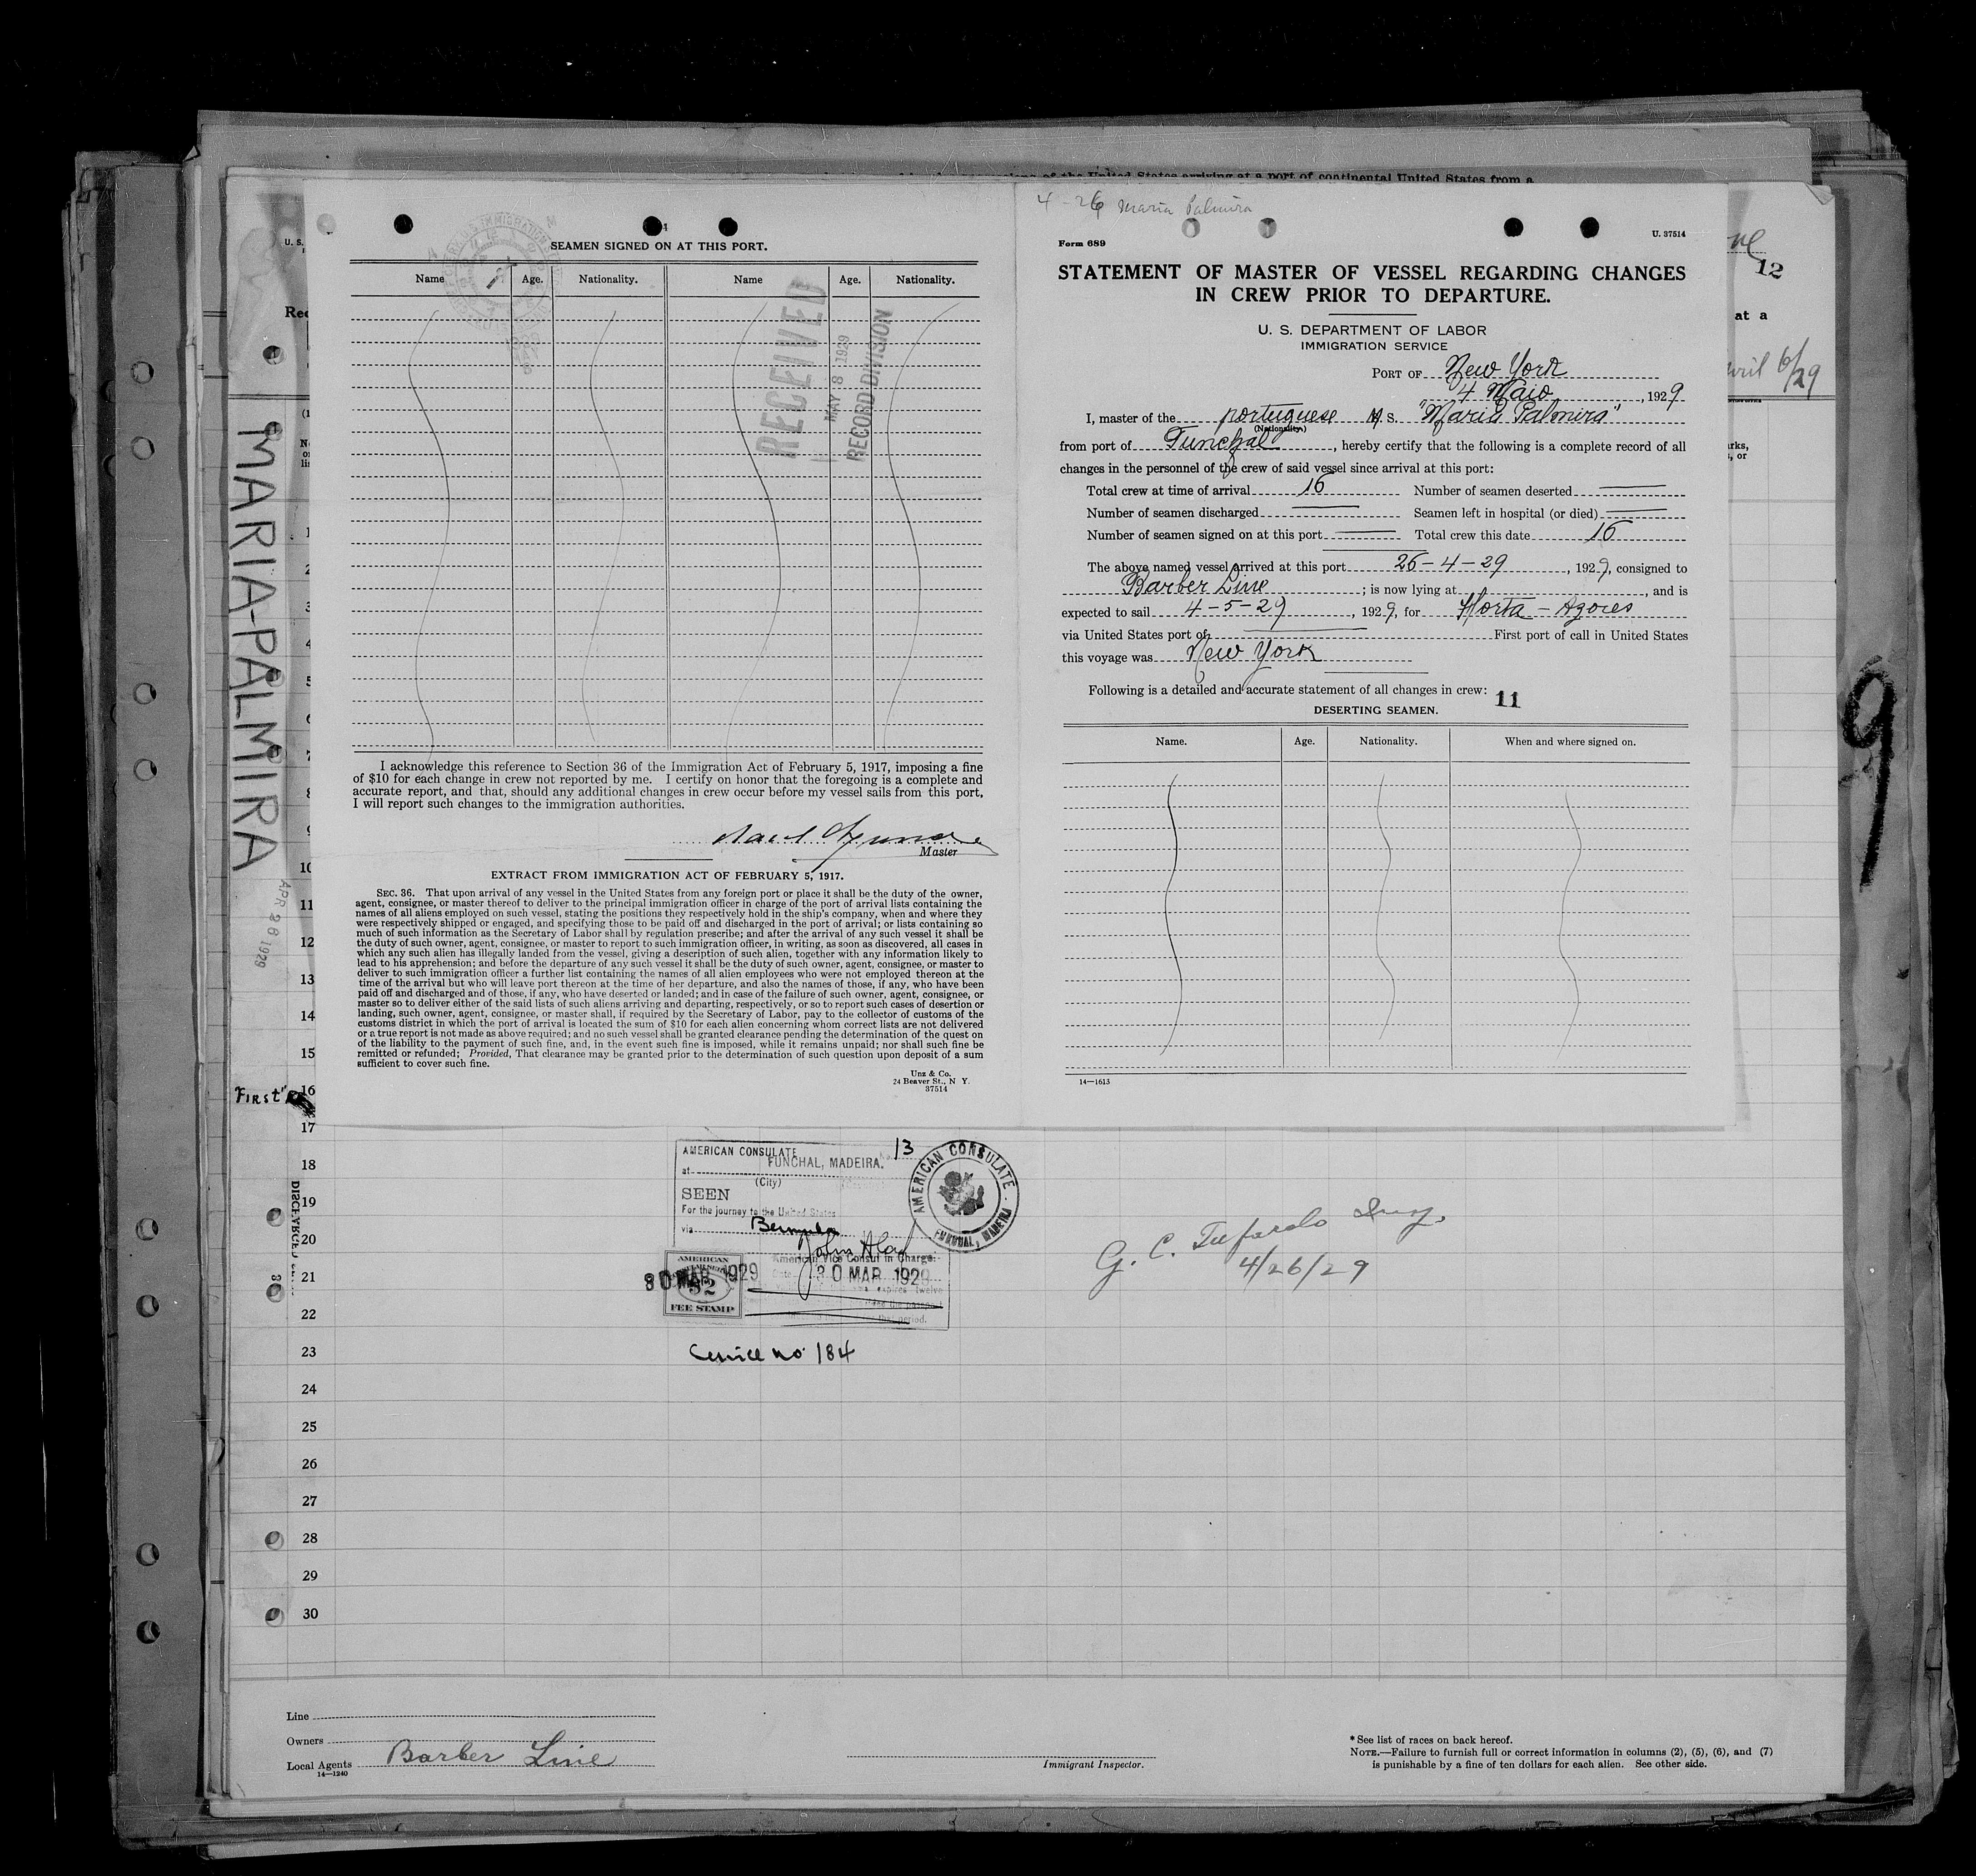 of the United States arriving at a port of continental United States from a
SEAMEN SIGNED ON AT THIS PORT.
Name Age. Nationality. Name Age. Nationality.
RECEIVED
MAY 8 1929
RECORD DIVISION
I acknowledge this reference to Section 36 of the Immigration Act of February 5, 1917, imposing a fine
of $10 for each change in crew not reported by me. I certify on honor that the foregoing is a complete and
accurate report, and that, should any additional changes in crew occur before my vessel sails from this port,
I will report such changes to the immigration authorities.
Master
EXTRACT FROM IMMIGRATION ACT OF FEBRUARY 5, 1917.
SEC. 36. That upon arrival of any vessel in the United States from any foreign port or place it shall be the duty of the owner,
agent, consignee, or master thereof to deliver to the principal immigration officer in charge of the port of arrival lists containing the
names of all aliens employed on such vessel, stating the positions they respectively hold in the ship's company, when and where they
were respectively shipped or engaged, and specifying those to be paid off and discharged in the port of arrival; or lists containing so
much of such information as the Secretary of Labor shall by regulation prescribe; and after the arrival of any such vessel it shall be
the duty of such owner, agent, consignee, or master to report to such immigration officer, in writing, as soon as discovered, all cases in
which any such alien has illegally landed from the vessel, giving a description of such alien, together with any information likely to
lead to his apprehension; and before the departure of any such vessel it shall be the duty of such owner, agent, consignee, or master to
deliver to such immigration officer a further list containing the names of all alien employees who were not employed thereon at the
time of the arrival but who will leave port thereon at the time of her departure, and also the names of those, if any, who have been
paid off and discharged and of those, if any, who have deserted or landed; and in case of the failure of such owner, agent, consignee, or
master so to deliver either of the said lists of such aliens arriving and departing, respectively, or so to report such cases of desertion or
landing, such owner, agent, consignee, or master shall, if required by the Secretary of Labor, pay to the collector of customs of the
customs district in which the port of arrival is located the sum of $10 for each alien concerning whom correct lists are not delivered
or a true report is not made as above required; and no such vessel shall be granted clearance pending the determination of the quest on
of the liability to the payment of such fine, and, in the event such fine is imposed, while it remains unpaid; nor shall such fine be
remitted or refunded; Provided, That clearance may be granted prior to the determination of such question upon deposit of a sum
sufficient to cover such fine.
Unz & Co.
24 Beaver St., N Y.
37514
4-26 Maria Palmira
Form 689
U. 37514
STATEMENT OF MASTER OF VESSEL REGARDING CHANGES
IN CREW PRIOR TO DEPARTURE.
U. S. DEPARTMENT OF LABOR
IMMIGRATION SERVICE
PORT OF New York
4 Maio, 1929
I, master of the portuguese M. S. "Maria Palmira"
(Nationality)
from port of Funchal, hereby certify that the following is a complete record of all
changes in the personnel of the crew of said vessel since arrival at this port:
Total crew at time of arrival 16 Number of seamen deserted
Number of seamen discharged Seamen left in hospital (or died)
Number of seamen signed on at this port Total crew this date 16
The above named vessel arrived at this port 26-4-29, 1929, consigned to
Barber Line; is now lying at, and is
expected to sail 4-5-29, 1929, for Horta - Açores
via United States port of First port of call in United States
this voyage was New York
Following is a detailed and accurate statement of all changes in crew: 11
DESERTING SEAMEN.
Name. Age. Nationality. When and where signed on.
14—1613
U. S.
12
at a
April 6/29
MARIA-PALMIRA
APR 26 1929
9
1
2
3
4
5
6
7
8
9
10
11
12
13
14
15
FIRST 16
17
18
19
20
21
22
23
24
25
26
27
28
29
30
AMERICAN CONSULATE 13
at FUNCHAL, MADEIRA.
(City)
SEEN
For the journey to the United States
via Bermuda
American Vice Consul in Charge.
30 MAR 1929
30 MAR 1929
AMERICAN
FEE STAMP
AMERICAN CONSULATE. FUNCHAL, MADEIRA
Service no 184
4/26/29
Line
Owners
Local Agents Barber Line
14—1240
Immigrant Inspector.
* See list of races on back hereof.
NOTE.—Failure to furnish full or correct information in columns (2), (5), (6), and (7)
is punishable by a fine of ten dollars for each alien. See other side.